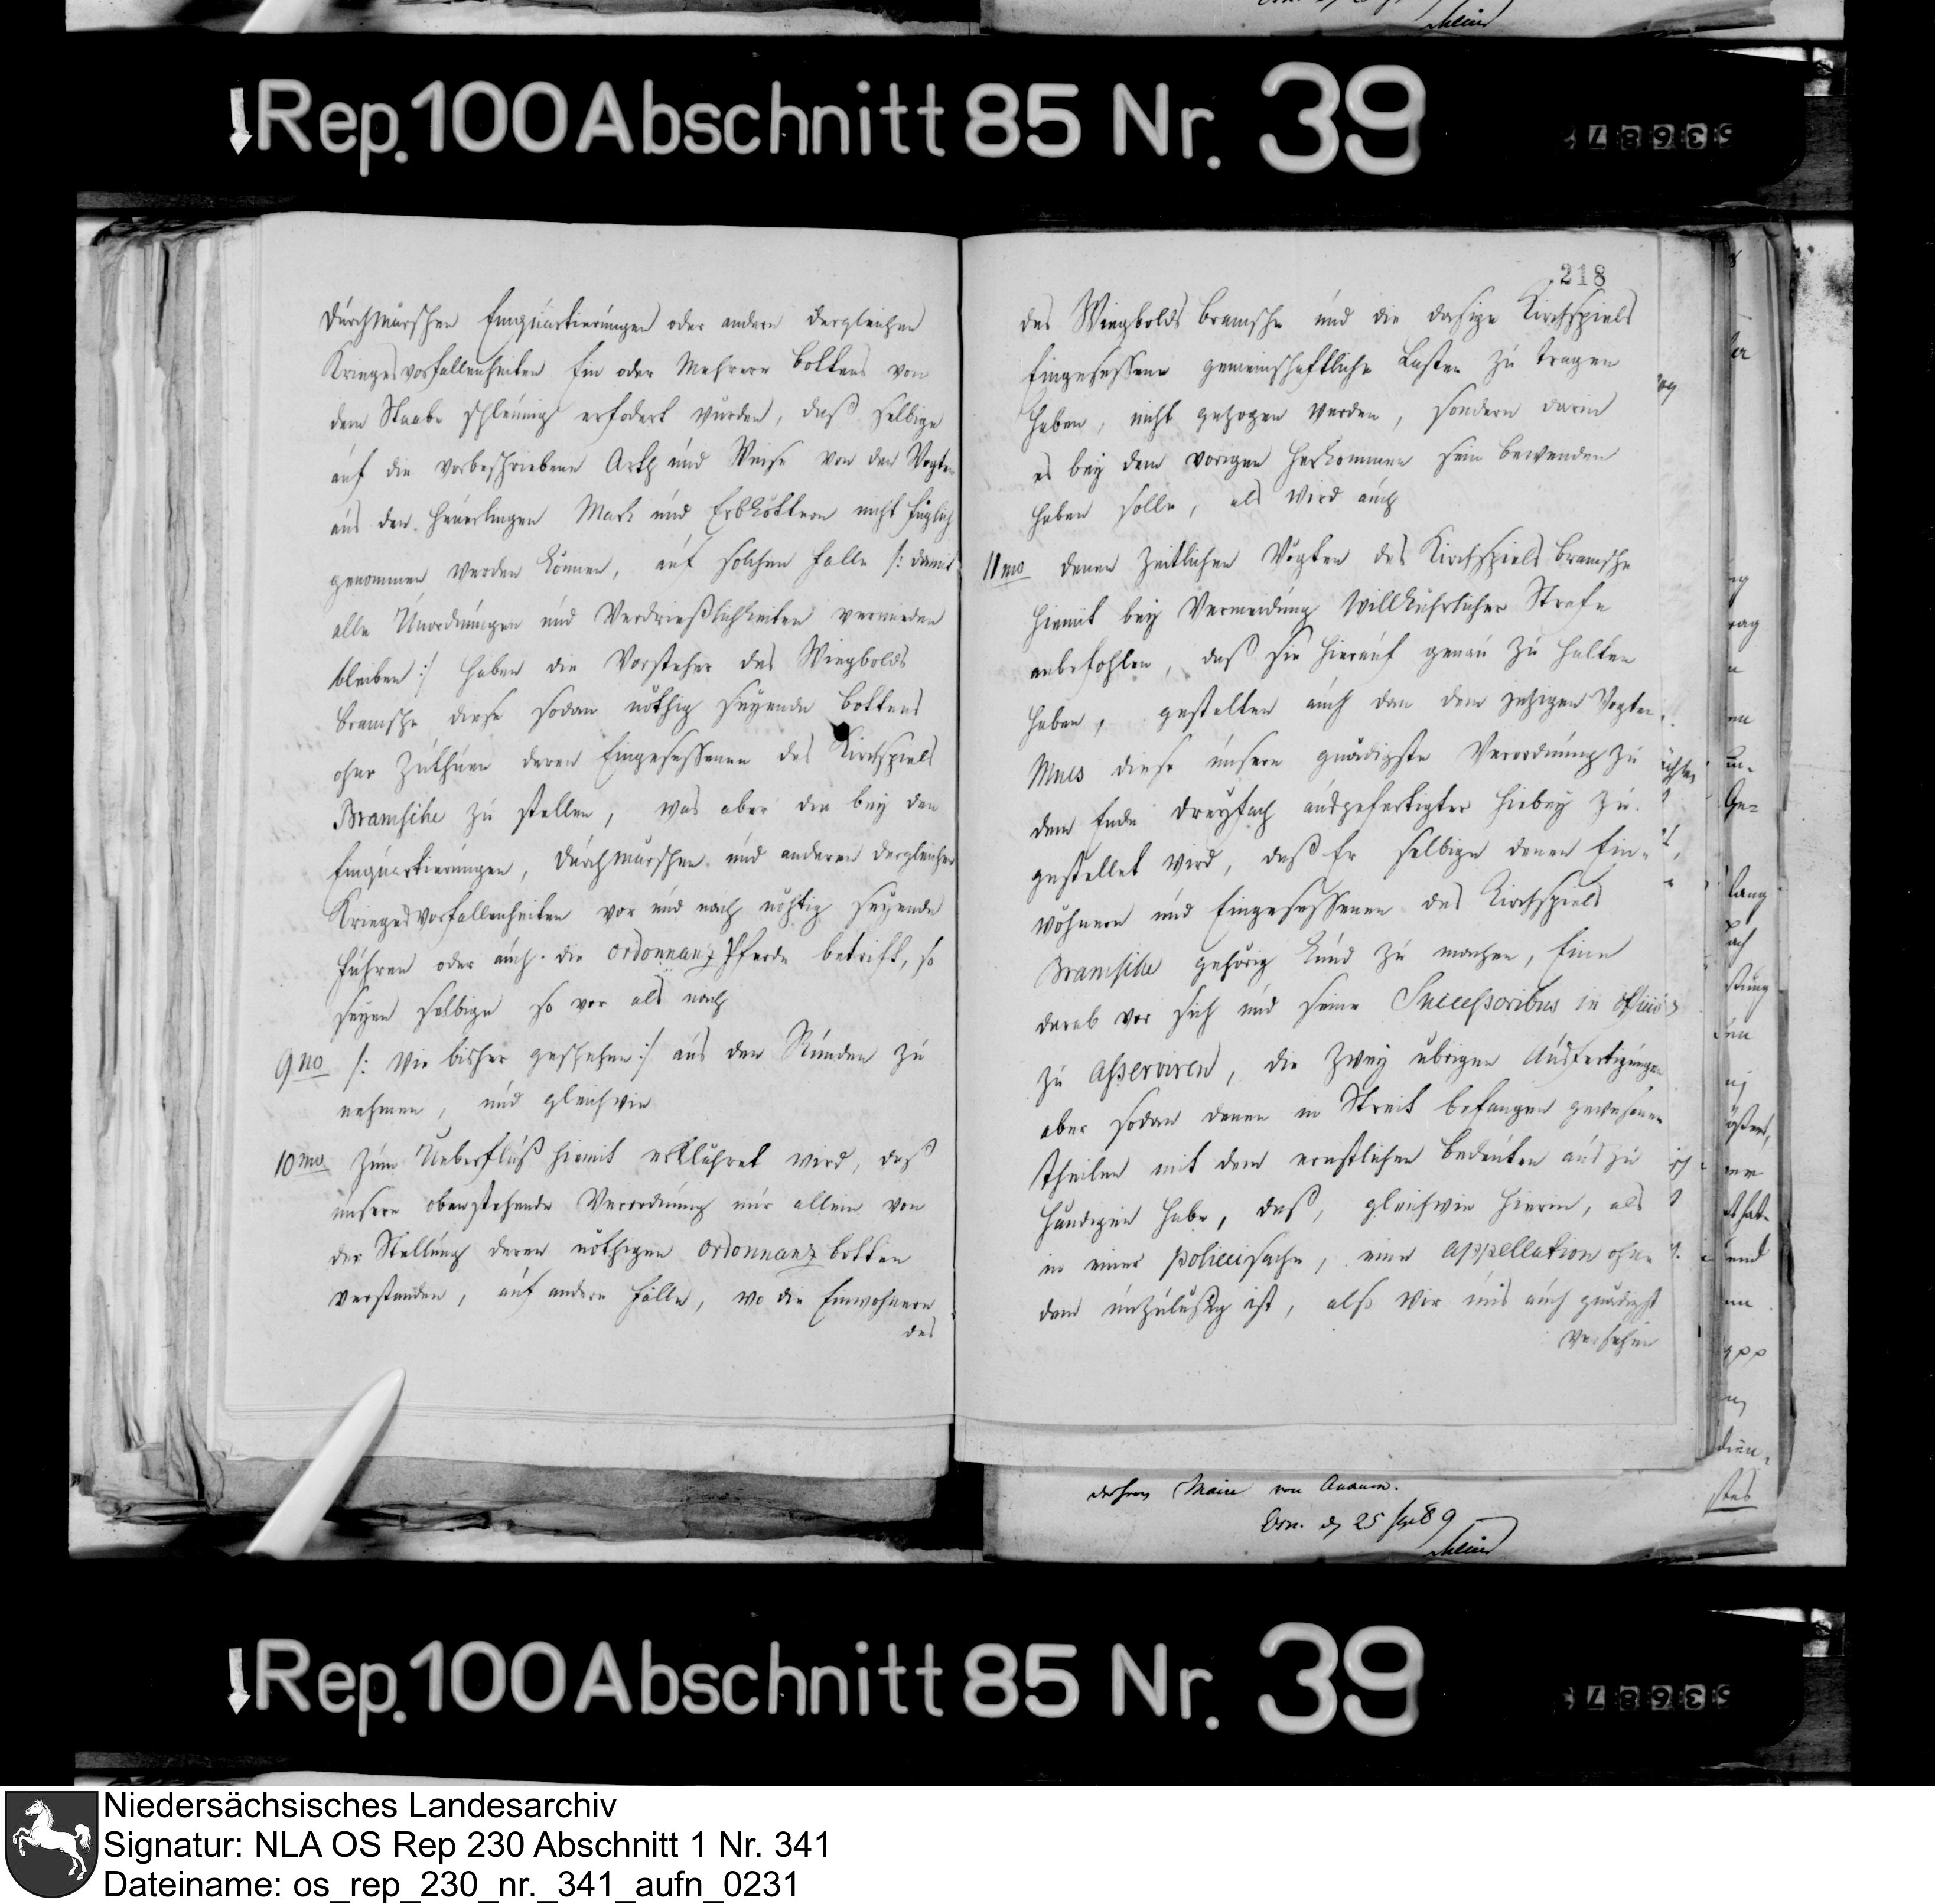 Rep. 100 Abschnitt 85 Nr. 39
durchmärschen Einquartierungen oder andern dergleichen
Krieges vorfallenheiten Ein oder Mehrere bottens von
dem Staabe schleunigs erfodert würden, daß selbige
auf die vorbeschriebene Arth und Weise von den Vogten
aus den Heuerlingen Mark und Erbköttern nicht füglich
genommen werden können, auf solchen falle /: damit
alle Unordnungen und Verdrießlichkeiten vermieden
bleiben :/ haben die Vorsteher des Wiegbolds
bramsche diese sodan nöthig seyende bottens
ohne Zuthuen deren Eingesessenen des Kirchspiels
Bramsche zu stellen, was aber die bey den
Einquartierungen, durchmärschen und anderen dergleichen
Krieges vorfallenheiten vor und nach nöhtig seyende
fuhren oder auch die ordonnanz Pferde betrift, so
seyen selbige so vor als nach
9no /: wie bisher geschehen :/ aus den Runden zu
nehmen, und gleichwie
10mo zum Ueberfluß hiemit erklähret wird, daß
unsere obenstehende Verordnung nur allein von
der Stellung deren nöthigen ordonnanz botten
verstanden, auf andere fälle, wo die Einwohnere
des
218
des Wiegbolds bramsche und die dasige Kirchspiels
Eingesessene gemeinschaftliche Lasten zu tragen
haben, nicht gezogen werden, sondern darin
es bey dem vorigen Herkommen sein bewenden
haben solle, als wird auch
11mo denen zeitlichen Vögten des Kirchspiels bramsche
hiemit bey Vermeidung willkührlicher Strafe
anbefohlen, daß sie hierauf genau zu halten
haben, gestalten auch dan dem jetzigen Vogten
Mues diese unsere gnädigste Verordnung zu
dem Ende dreyfach ausgefertigter hiebey zu-
gestellet wird, daß Er selbige denen Ein-
wohnern und Eingesessenen des Kirchspiels
Bramsche gehörig kund zu machen, Eine
darab vor sich und seine Successoribus in officio
zu asserviren, die zwey übrigen Ausfertigungen
aber sodan denen in Streit befangen gewesenen
theilen mit dem ernstlichen bedeuten aus zu
händigen habe, daß, gleichwie hierin, als
in einer policeisache, eine appellation ohne
dem unzuläßig ist, also wir uns auch gnädigst
versehen
Maire von
d 25
Rep. 100 Abschnitt 85 Nr. 39
Niedersächsisches Landesarchiv
Signatur: NLA OS Rep 230 Abschnitt 1 Nr. 341
Dateiname: os_rep_230_nr._341_aufn_0231